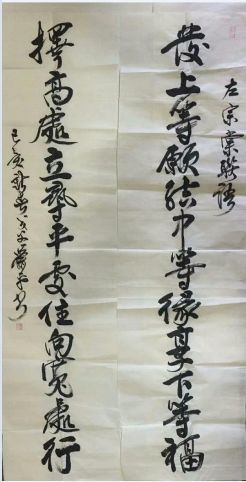 左宗棠联语
发上等愿结中等缘享下等福
择高处立寻平处住向宽处行
己亥